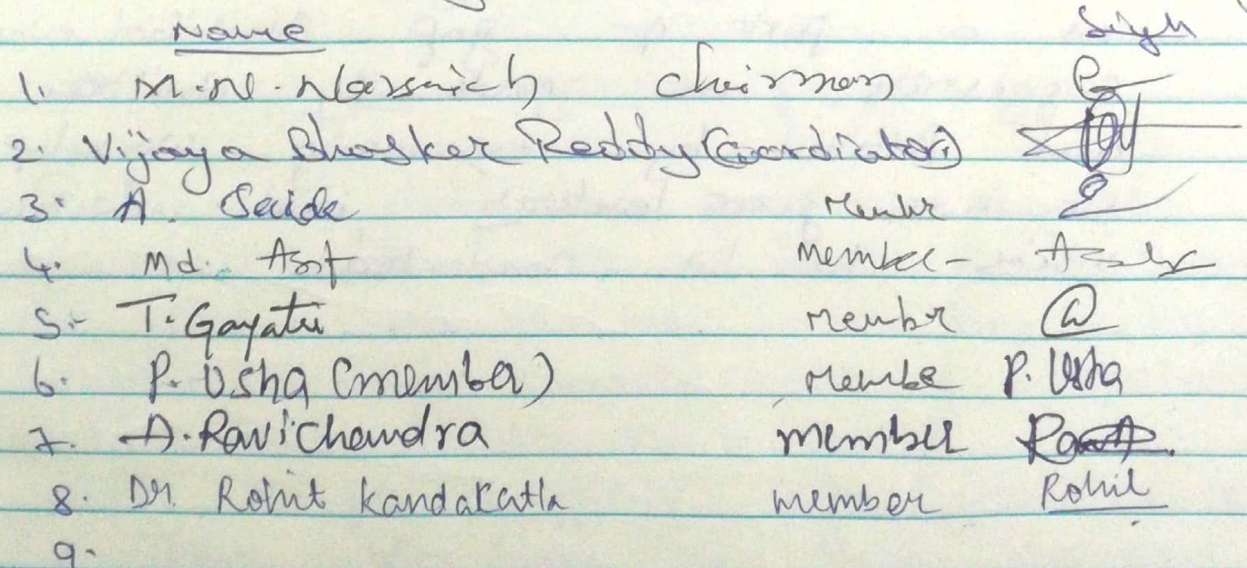 Name Sign
1. M.N. Narsaich Chairman
2. Vijaya Bhasker Reddy (Coordiator)
3. A. Saida Membr
4. Md. Asif Member -
5. T. Gayatri Membr @
6. P. Usha (member) Membe P. Usha
7. A. Ravichandra member
8. Dr. Rohit Kandakatla member Rohit
9.